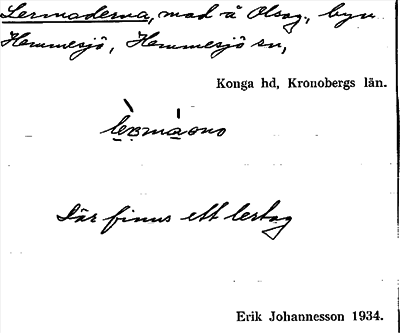 Lermaderna, mad å Olsag., byn
Hemmesjö, Hemmesjö sn,
Konga hd, Kronobergs län.
Där finns ett lertag
Erik Johannesson 1934.